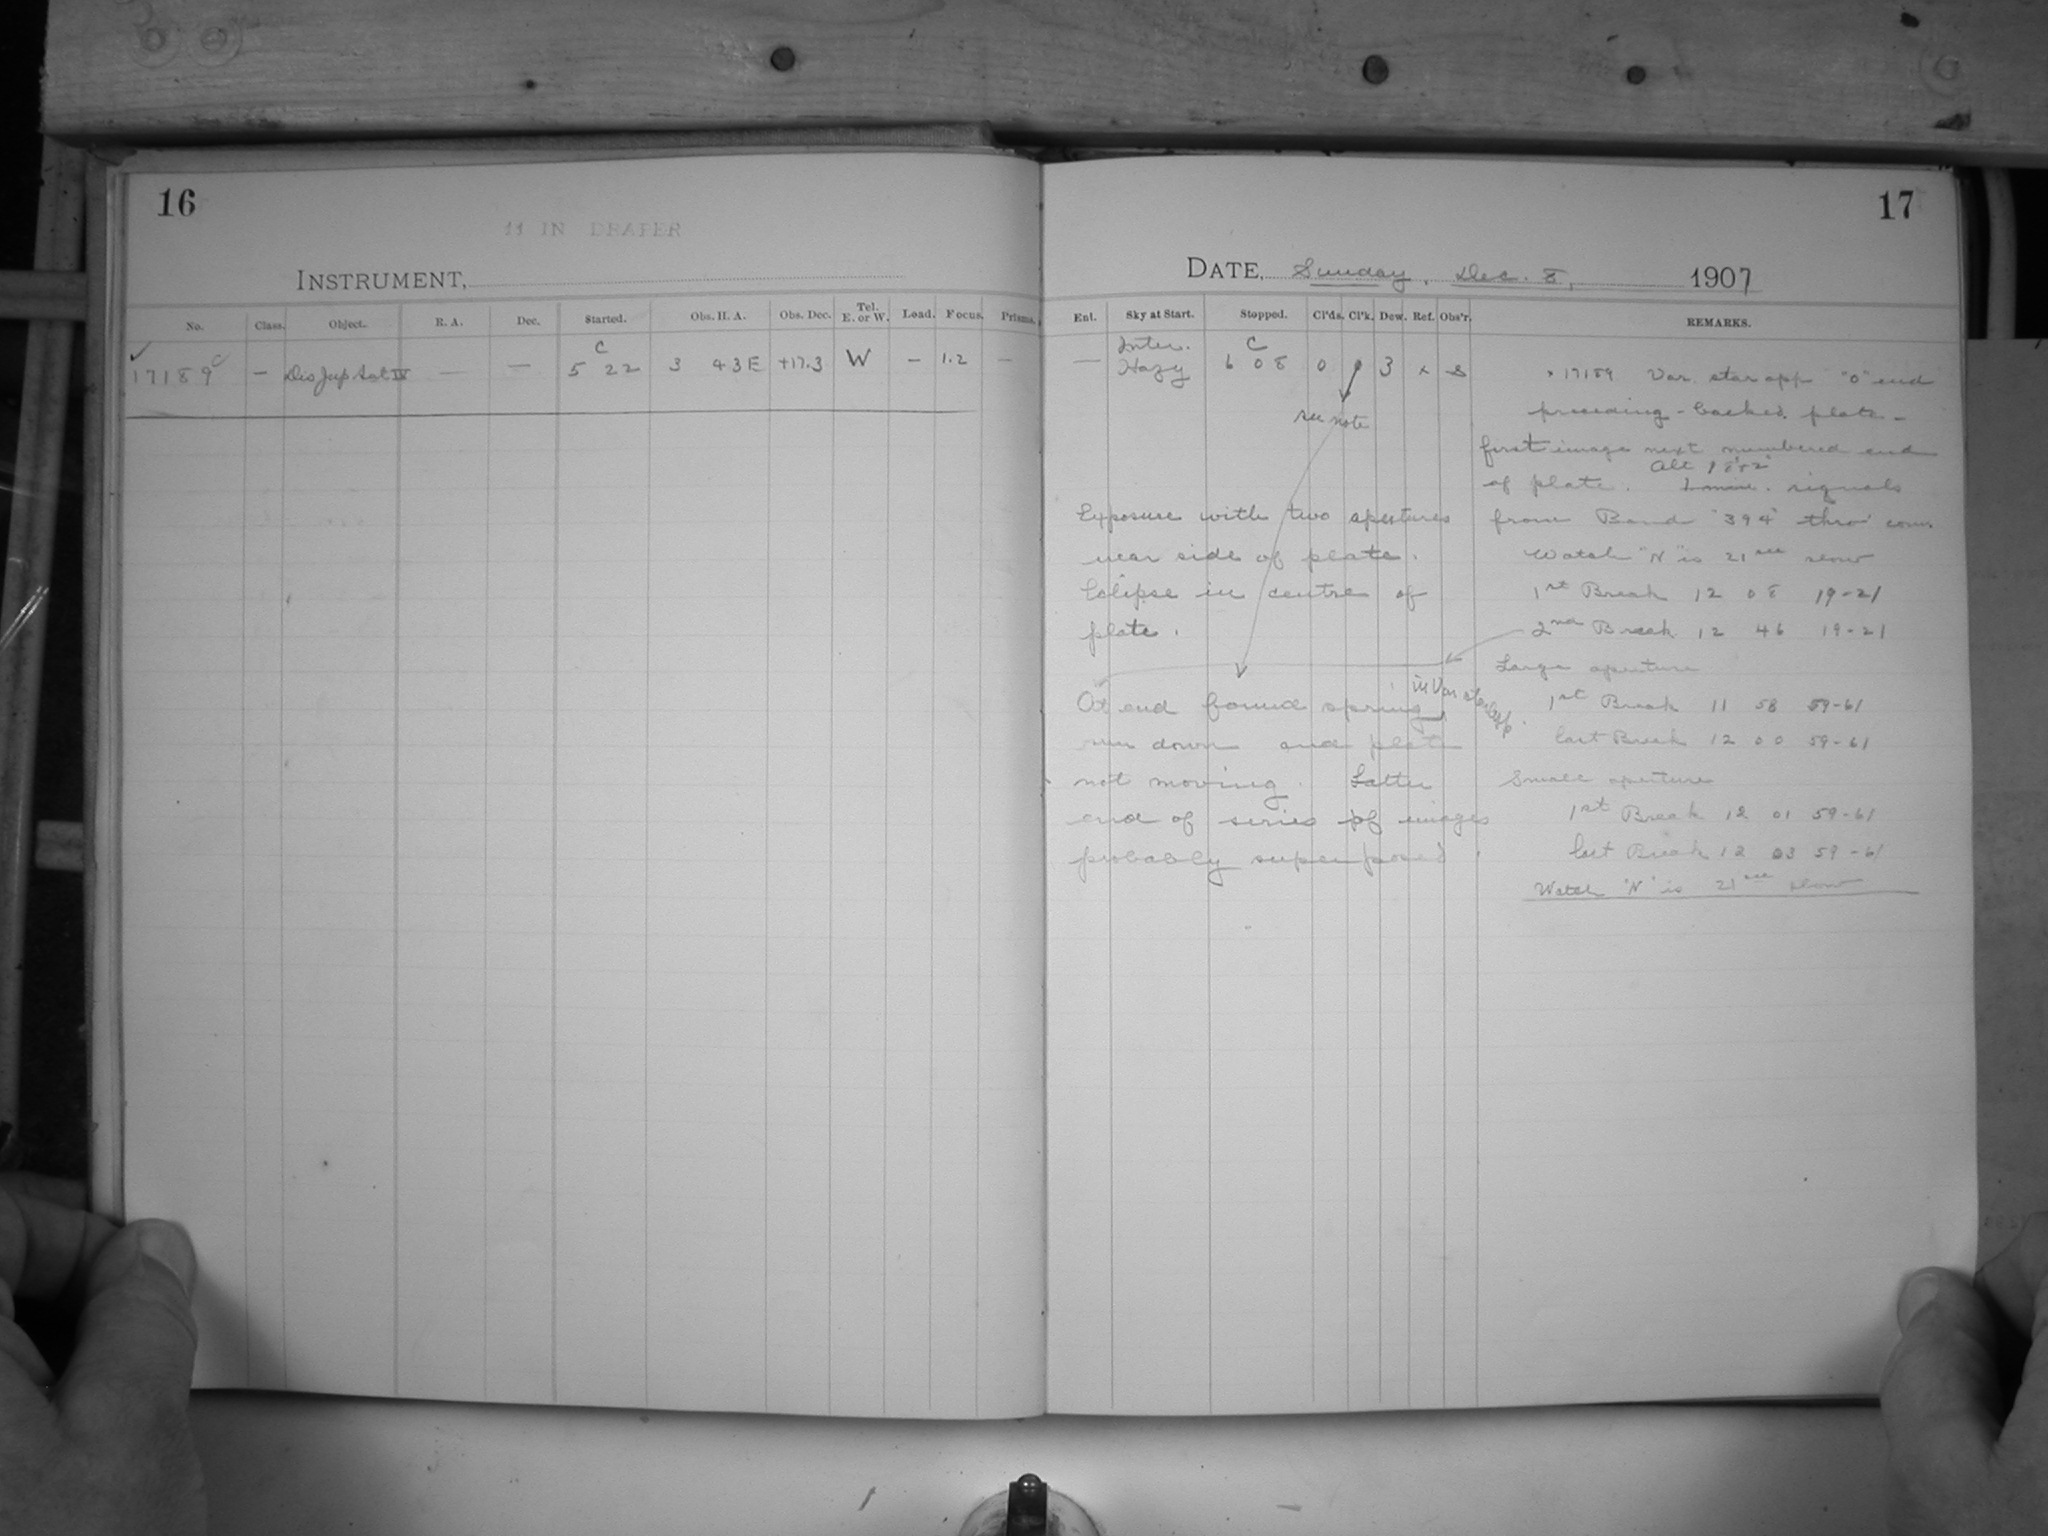 16
11 IN DRAPER
INSTRUMENT,
No. Class. Object. R. A. Dec. Started. Obs. H. A. Obs. Dec. Tel. E. or W. Load. Focus. Prisms.
✓ 17189 c — Dis Jup Sat IV — — C 5 22 3 43 E +17.3 W — 1.2 —
17
DATE, Sunday, Dec. 8, 1907
Ent. Sky at Start. Stopped. Cl'ds. Cl'k. Dew. Ref. Obs'r. REMARKS.
— Inter. Hazy C 6 08 0 3 x S
see note
x 17189 Var. star app "0" end
preceding - backed plate -
first image next numbered end
Alt 1852
of plate. signals
from Bond "394" thro' com.
Watch "N" is 21 sec slow
1st Break 12 08 19-21
2nd Break 12 46 19-21
Large aperture
1st Break 11 58 59-61
last Break 12 00 59-61
Small aperture
1st Break 12 01 59-61
last Break 12 03 59-61
Watch "N" is 21 sec slow
Exposure with two apertures
near side of plate.
Eclipse in centre of
plate.
At end found spring in Var star app.
run down and plate
not moving. Latter
end of series of images
probably superposed.